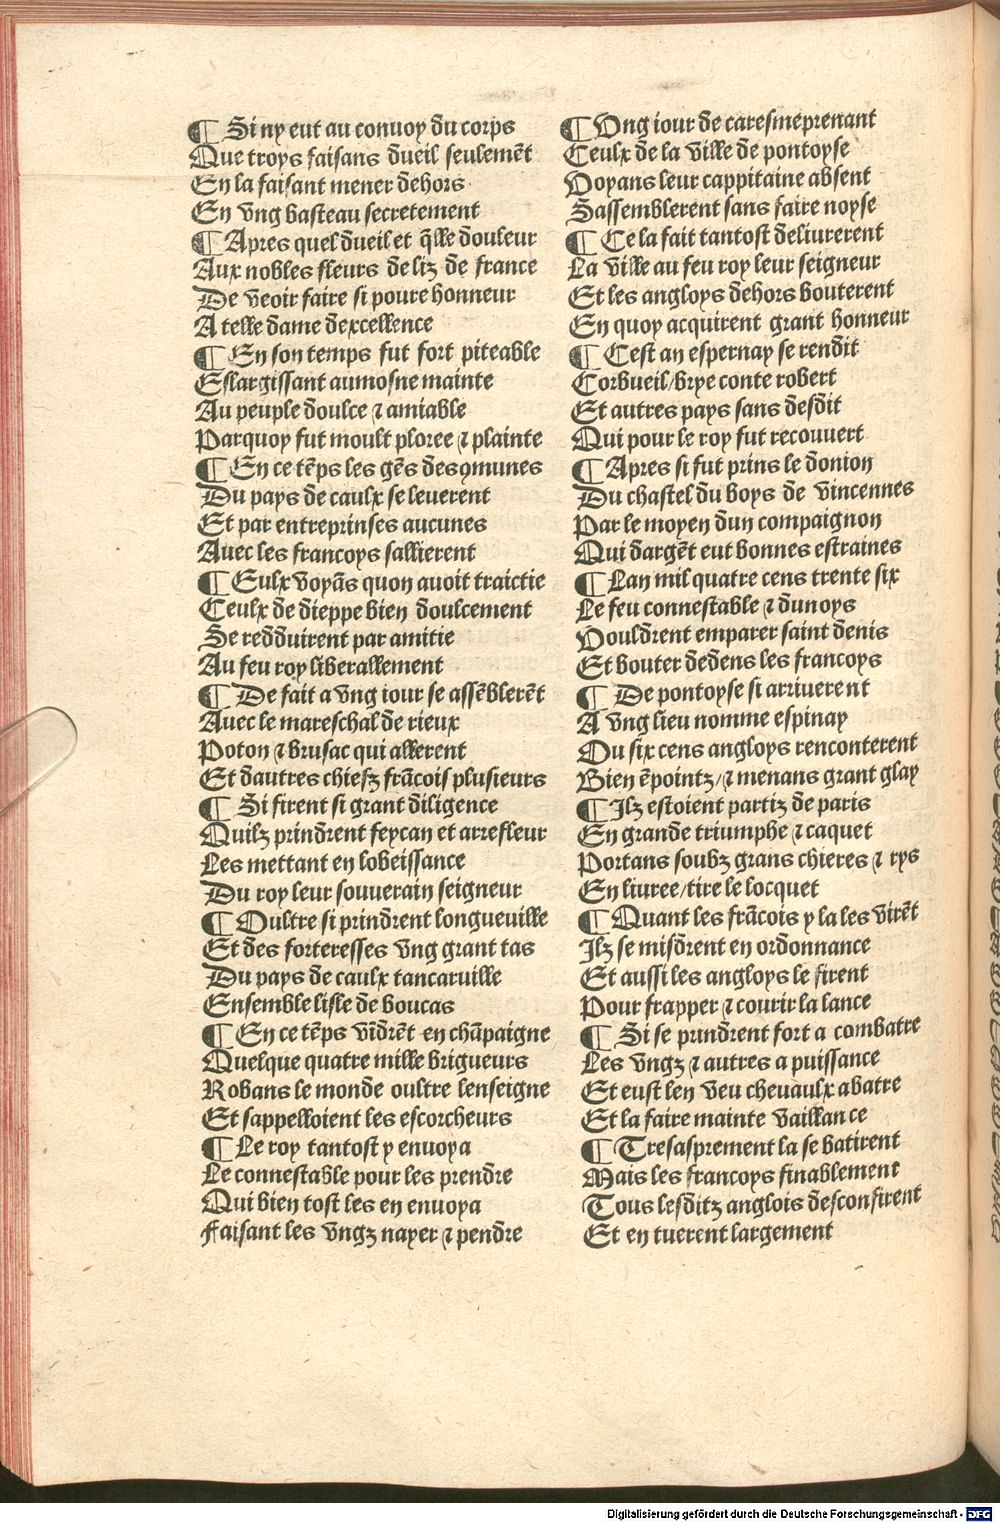 ¶ Si ny eut au conuoy du corps
Que troys faisans dueil seulemẽt
En la faisant mener dehors
En vng basteau secretement
¶ Apres quel dueil et q̃lle douleur
Aux nobles fleurs de liz de france
De veoir faire si poure honneur
A telle dame dexcellence
¶ En son temps fut fort piteable
Eslargissant aumosne mainte
Au peuple doulce ⁊ amiable
Parquoy fut moult ploree ⁊ plainte
¶ En ce tẽps les gẽs des ꝯmunes
Du pays de caulx se leuerent
Et par entreprinses aucunes
Auec les francoys sallierent
¶ Eulx voyãs quon auoit traictie
Ceulx de dieppe bien doulcement
Se redduirent par amitie
Au feu roy liberallement
¶ De fait a vng iour se assẽblerẽt
Auec le mareschal de rieux
Poton ⁊ brusac qui allerent
Et dautres chiefz frãcois plusieurs
¶ Si firent si grant diligence
Quilz prindrent feycan et arrefleur
Les mettant en lobeissance
Du roy leur souuerain seigneur
¶ Oultre si prindrent longueuille
Et des forteresses vng grant tas
Du pays de caulx tancaruille
Ensemble lisle de boucas
¶ En ce tẽps vĩdrẽt en chãpaigne
Quelque quatre mille brigueurs
Robans le monde oultre lenseigne
Et sappelloient les escorcheurs
¶ Le roy tantost y enuoya
Le connestable pour les prendre
Qui bien tost les en enuoya
Faisant les vngz nayer ⁊ pendre
¶ Vng iour de caresmeprenant
Ceulx de la ville de pontoyse
Voyans leur cappitaine absent
Sassemblerent sans faire noyse
¶ Ce la fait tantost deliurerent
La ville au feu roy leur seigneur
Et les angloys dehors bouterent
En quoy acquirent grant honneur
¶ Cest an espernay se rendit
Corbueil/brye conte robert
Et autres pays sans desdit
Qui pour le roy fut recouuert
¶ Apres si fut prins le donion
Du chastel du boys de vincennes
Par le moyen dun compaignon
Qui dargẽt eut bonnes estraines
¶ Lan mil quatre cens trente six
Le feu connestable ⁊ dunoys
Vouldrent emparer saint denis
Et bouter dedens les francoys
¶ De pontoyse si arriuerent
A vng lieu nomme espinay
Ou six cens angloys renconterent
Bien ẽpointz/⁊ menans grant glay
¶ Ilz estoient partiz de paris
En grande triumphe ⁊ caquet
Portans soubz grans chieres ⁊ rys
En liuree/tire le locquet
¶ Quant les frãcois y la les virẽt
Ilz se misdrent en ordonnance
Et aussi les angloys le firent
Pour frapper ⁊ courir la lance
¶ Si se prindrent fort a combatre
Les vngz ⁊ autres a puissance
Et eust len veu cheuaulx abatre
Et la faire mainte vaillance
¶ Tresasprement la se batirent
Mais les francoys finablement
Tous lesditz anglois desconfirent
Et en tuerent largement
Digitalisierung gefördert durch die Deutsche Forschungsgemeinschaft - DFG